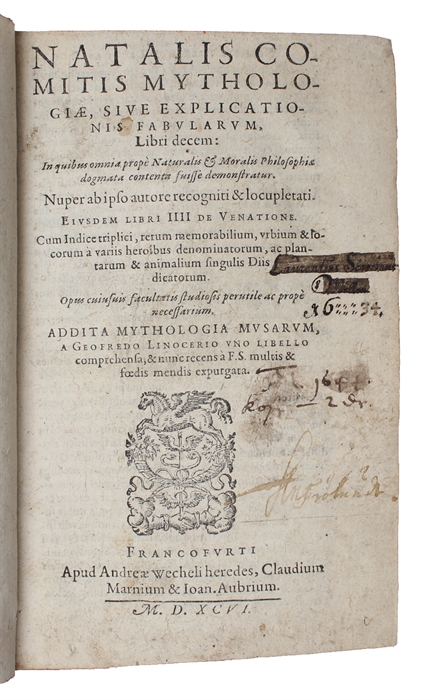 NATALIS CO-
MITIS MYTHOLO-
GIÆ, SIVE EXPLICATIO-
NIS FABVLARVM,
Libri decem:
In quibus omnia propè Naturalis & Moralis Philosophiæ
dogmata contenta fuisse demonstratur.
Nuper ab ipso autore recogniti & locupletati.
EIVSDEM LIBRI IIII DE VENATIONE.
Cum Indice triplici, rerum memorabilium, vrbium & lo-
corum à variis heroïbus denominatorum, ac plan-
tarum & animalium singulis Diis
dicatorum.
Opus cuiusuis facultatis studiosis perutile ac propè
necessarium.
ADDITA MYTHOLOGIA MVSARVM,
A GEOFREDO LINOCERIO VNO LIBELLO
comprehensa, & nunc recens à F.S. multis &
fœdis mendis expurgata.
1644
FRANCOFVRTI
Apud Andreæ Wecheli heredes, Claudium
Marnium & Ioan. Aubrium.
M. D. XCVI.